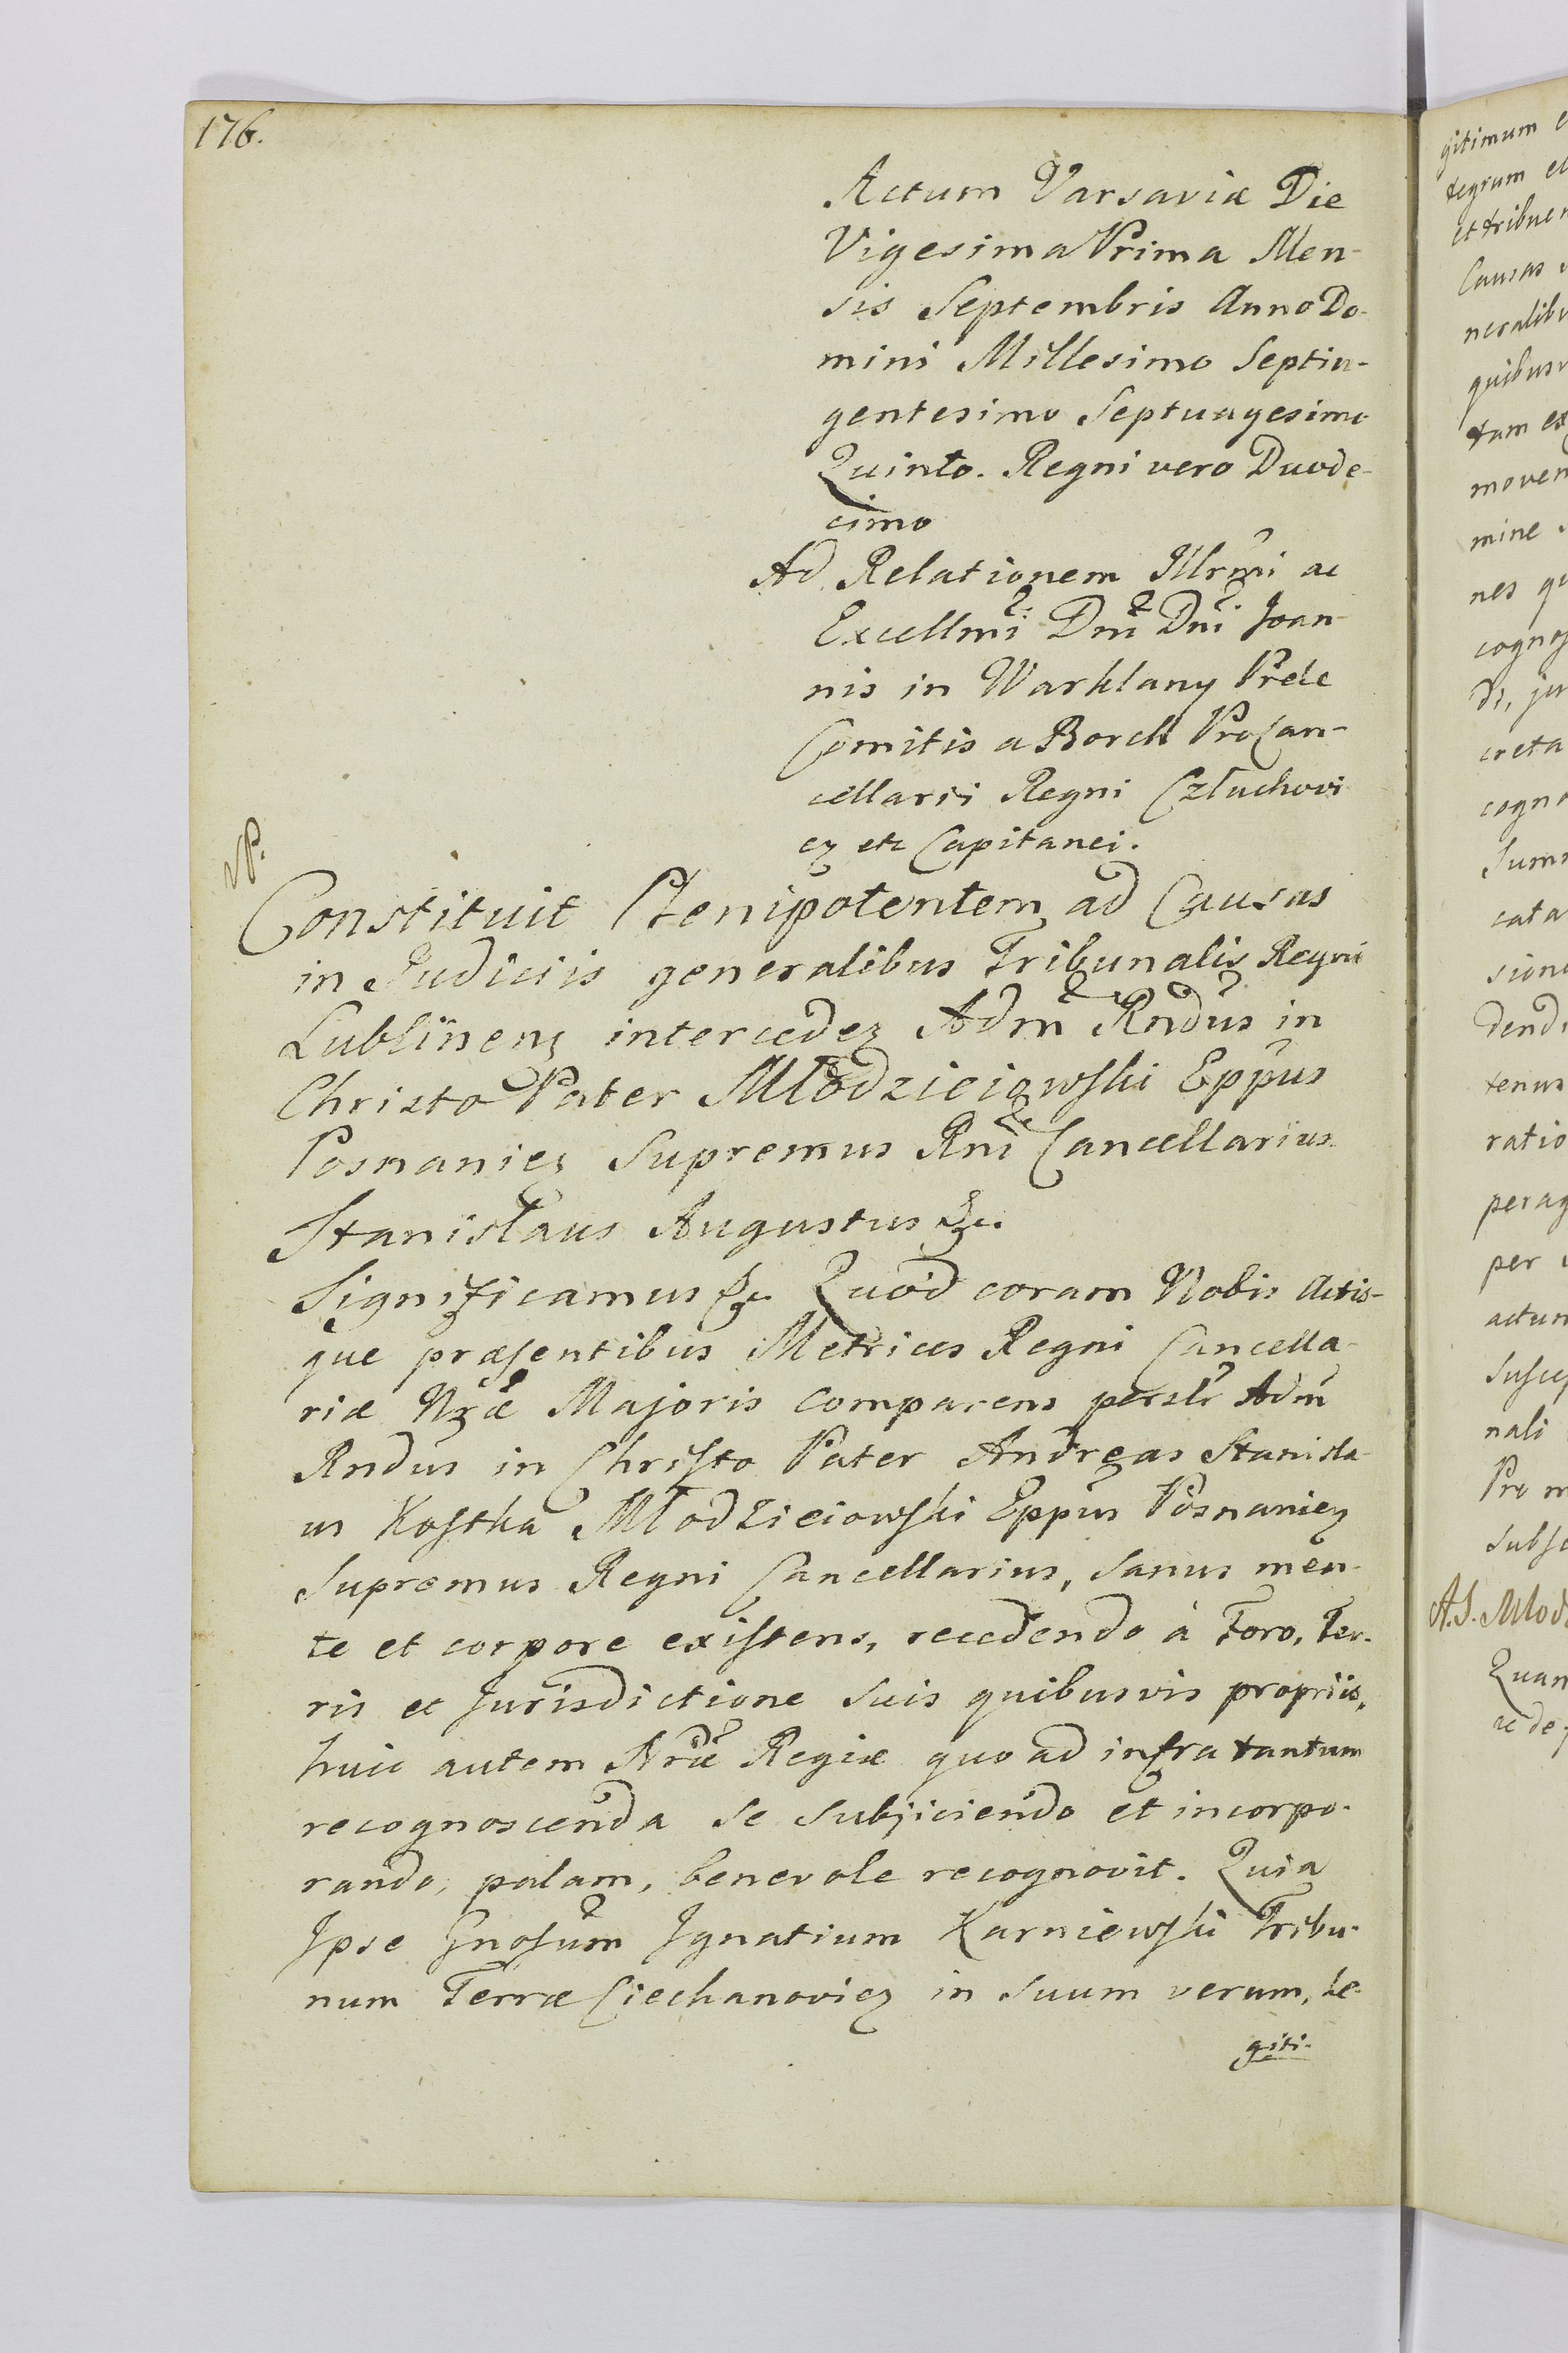 176.
Actum Varsaviæ Die
Vigesima Prima Men-
sis Septembris Anno Do-
mini Millesimo Septin-
gentesimo Septuagesimo
Quinto. Regni vero Duode-
cimo
Ad Relationem Illrmi ac
Excellmi Dni Dni Joan-
nis in Warklany Prele
Comitis a Borch ProCan-
cellarii Regni Człuchovi
eȝ etc Capitanei.
Constituit Plenipotentem ad Causas
in Judiciis generalibus Tribunalis Regni
Lublinenȝ intercedeȝ Adm Rndus in
Christo Pater Młodzieiowski Eppus
Posnanieȝ Supremus Rni Cancellarius
Stanislaus Augustus &c.
Significamus &c. Quod coram Nobis Actis-
que præsentibus Metrices Regni Cancella-
riæ Nræ Majoris comparens persлr Adm
Rndus in Christo Pater Andreas Stanisla-
us Kostka Młodzieiowski Eppus Posnanieȝ
Supremus Regni Cancellarius, sanus men-
te et corpore existens, recedendo à Foro, Ter-
ris et Jurisdictione suis quibusvis propriis,
huic autem Nræ Regiæ quo ad infra tantum
recognoscenda se subjiciendo et incorpo-
rando, palam, benevole recognovit. Quia
Ipse Gnosum Ignatium Karniewski Tribu-
num Terræ Ciechanovieȝ in suum verum, le-
giti-
gitimum
tegrum et
et tribuen
Causas
neralibu
quibusv
tam ex
moven
mine
nes qu
cognos
di, ju
creta
cogno
Summ
cata
sion
dendi
tenus
ratio
perag
per
actum
Suscep
nali
Pro m
Subsc
A.S. Młodz
Quam